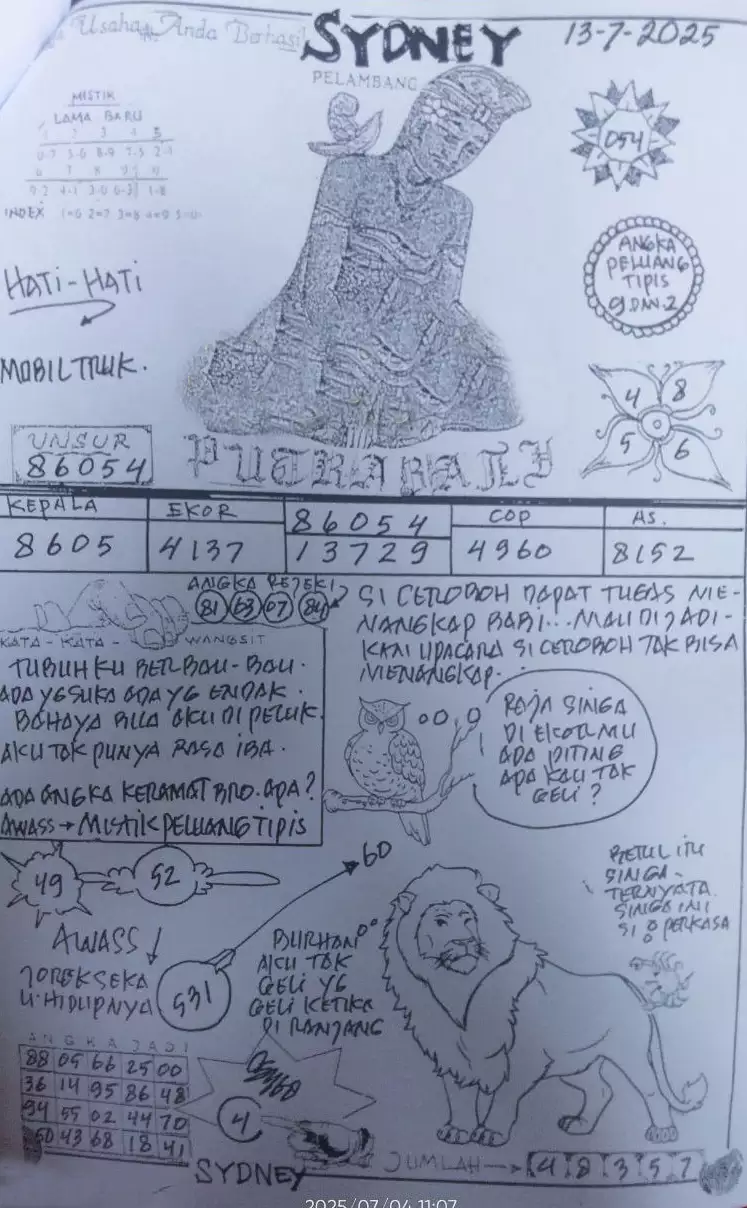 Usaha Anda Berhasil
SYDNEY
13-7-2025
PELAMBANG
MISTIK
LAMA BARU
1 2 3 4 5
0-7 5-6 8-9 7-3 2-1
6 7 8 9 0
9-2 4-1 3-0 6-3 1-8
INDEX 1=6 2=7 3=8 4=9 5=0
054
HATI-HATI
MOBIL TRUK.
ANGKA
PELUANG
TIPIS
9 DAN 2
4 8
5 6
UNSUR
86054
PUTRA BALI
KEPALA
8605
EKOR
4137
86054
13729
COP
4960
AS.
8152
ANGKA REJEKI
81 63 07 84
KATA - KATA - WANGSIT
TUBUHKU BERBAU-BAU.
ADA YG SUKA ADA YG ENDAK.
BAHAYA BILA AKU DI PELUK.
AKU TAK PUNYA RASA IBA.
ADA ANGKA KERAMAT BRO. APA?
AWASS → MISTIK PELUANG TIPIS
SI CEROBOH DAPAT TUGAS ME-
NANGKAP BABI... MAU DI JADI-
KAN UPACARA SI CEROBOH TAK BISA
MENANGKAP.
RAJA SINGA
DI EKORMU
ADA PITING
APA KAU TAK
GELI?
49
52
60
AWASS
JOREK SEKA
U. HIDUPNYA
531
BURHAN
AKU TAK
GELI YG
GELI KETIKA
DI RANJANG
BETUL ITU
SINGA -
TERNYATA
SINGA INI
SI PERKASA
ANGKA JADI
88 05 66 25 00
36 14 95 86 48
94 55 02 44 70
50 43 68 18 41
41
SYDNEY
JUMLAH → 4 8 3 5 7
2025/07/04 11:07